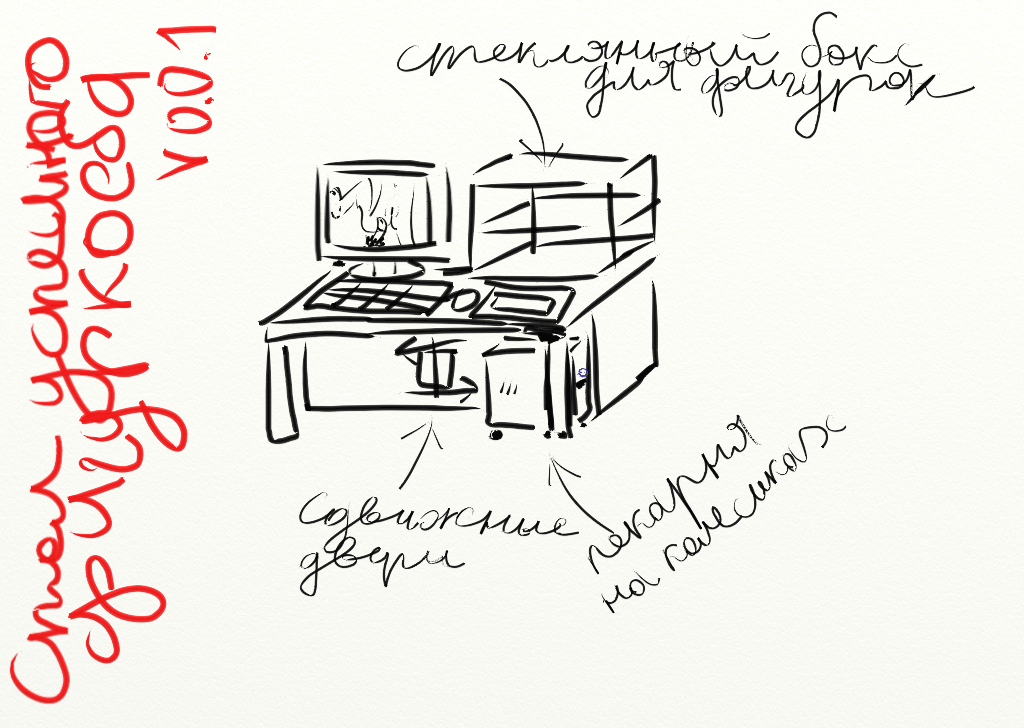 Стол успешного
фигуркоеба
v0.1
стеклянный бокс
для фигурок
сдвижные
двери
пекарня
на колесиках